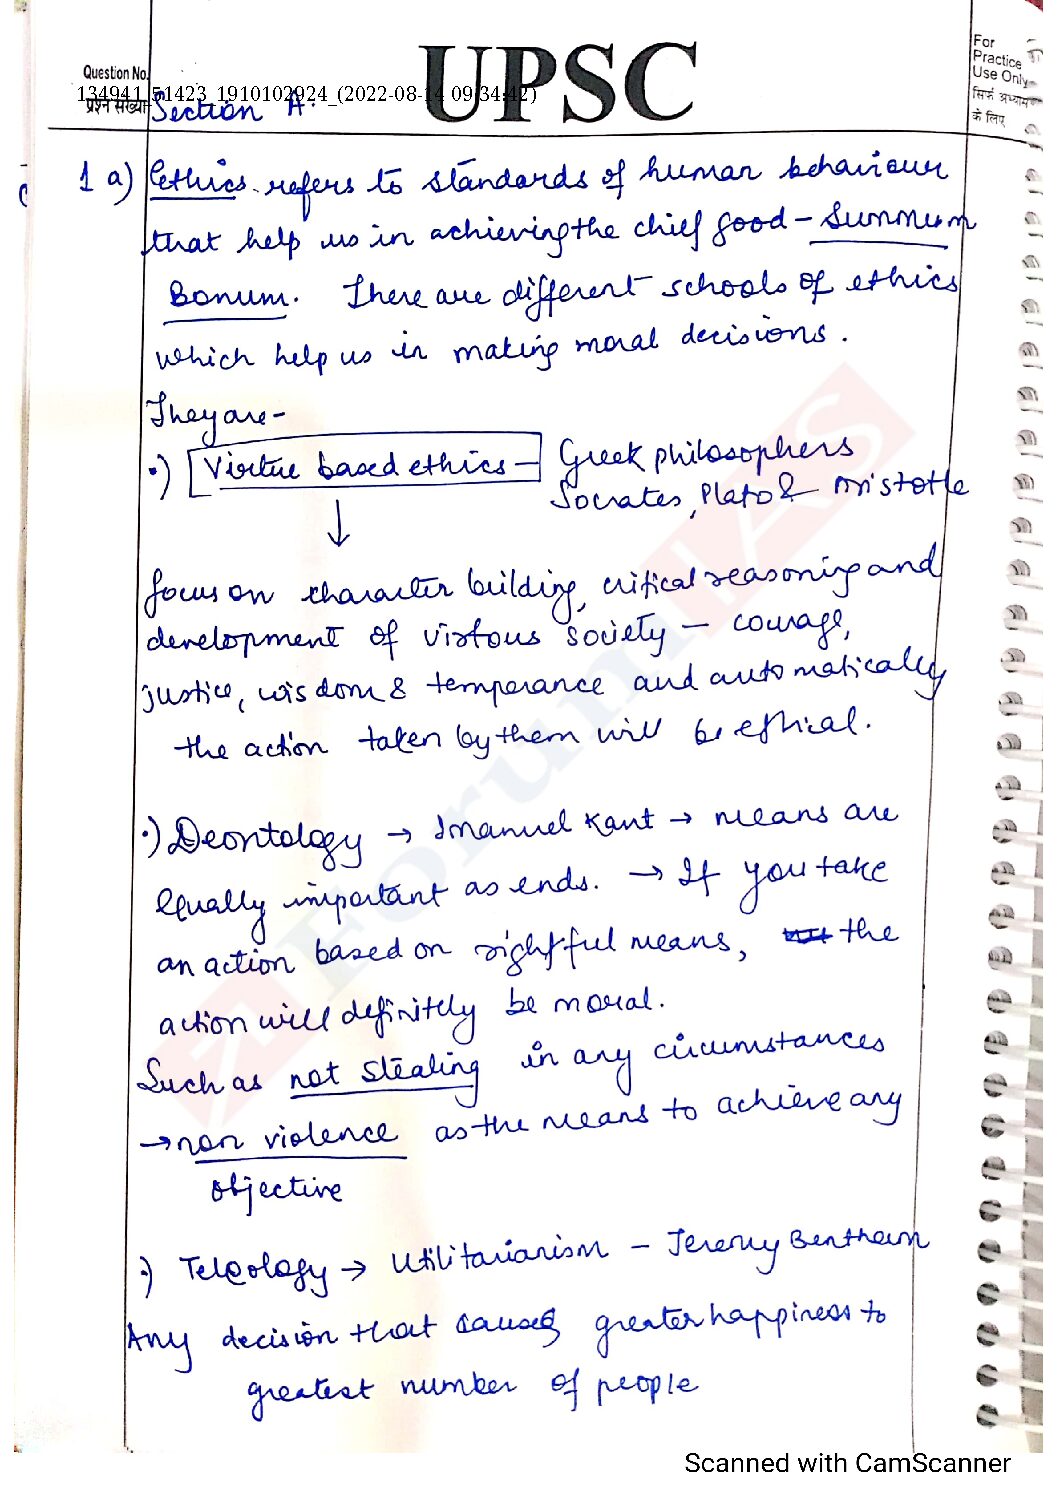 UPSC
Question No.
134941_51423_1910102924_(2022-08-14 09:34:42)
प्रश्न संख्या
For
Practice
Use Only
सिर्फ अभ्यास
के लिए
Section A:
1 a) Ethics refers to standards of human behaviour
that help us in achieving the chief good - Summum
Bonum. There are different schools of ethics
which help us in making moral decisions.
They are -
•) Virtue based ethics - Greek philosophers
Socrates, Plato & Aristotle
↓
focus on character building, critical reasoning and
development of virtous society - courage,
justice, wisdom & temperance and automatically
the action taken by them will be ethical.
•) Deontology → Imanuel Kant → means are
equally important as ends. → If you take
an action based on rightful means, the
action will definitely be moral.
Such as not stealing in any circumstances
→ non violence as the means to achieve any
objective
•) Teleology → Utilitarianism - Jeremy Bentham
Any decision that causes greater happiness to
greatest number of people
ForumIAS
Scanned with CamScanner